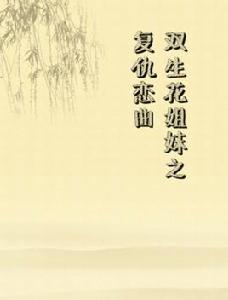 双生花姐妹之
复仇恋曲